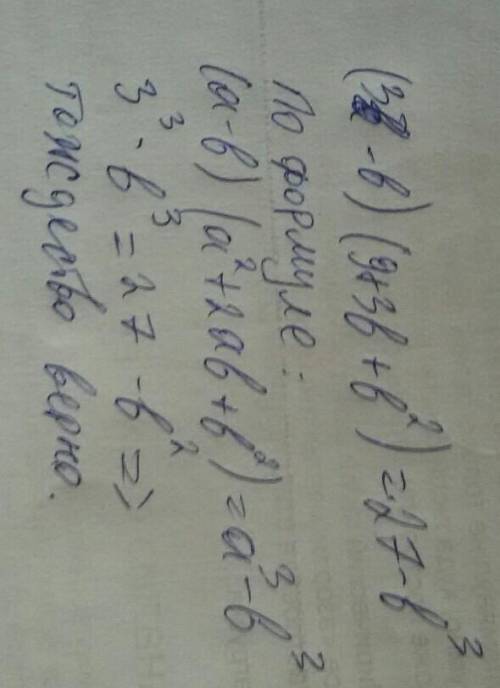 (3 - b) (9+3b+b²) = 27-b³
По формуле:
(a-b) (a²+2ab+b²) = a³-b³
3³ · b³ = 27 - b² =>
тождество верно.